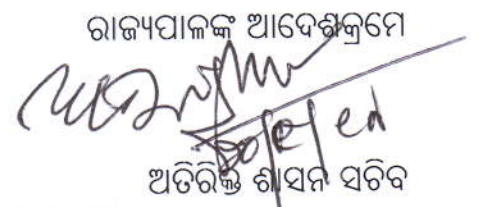 ରାଜ୍ୟପାଳଙ୍କ ଆଦେଶକ୍ରମେ
ଅତିରିକ୍ତ ଶାସନ ସଚିବ